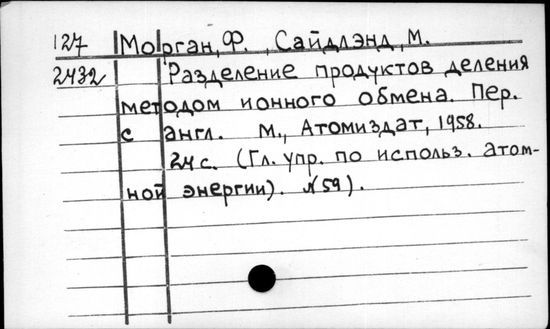 127 Морган, Ф., Сайдлэнд, М.
2432 Разделение продуктов деления
методом ионного обмена. Пер.
с англ. М., Атомиздат, 1958.
24 с. (Гл. упр. по использ. атом-
ной энергии). N 59).